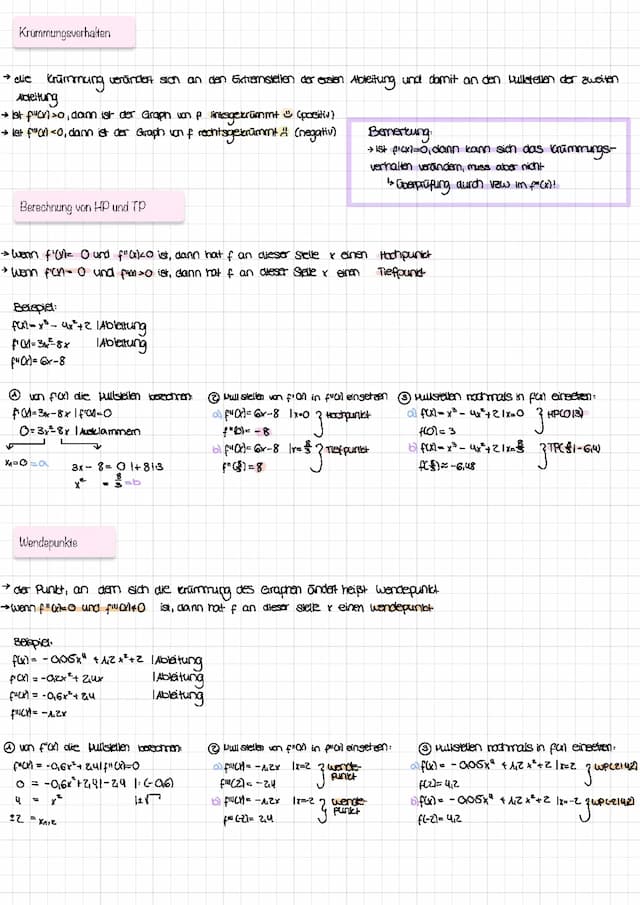 Krümmungsverhalten
→ die Krümmung verändert sich an den Extremstellen der ersten Ableitung und damit an den Nullstellen der zweiten
Ableitung
→ Ist f''(x)>0, dann ist der Graph von f linksgekrümmt (positiv)
→ Ist f''(x)<0, dann ist der Graph von f rechtsgekrümmt (negativ)
Bemerkung:
→ Ist f''(x)=0, dann kann sich das Krümmungs-
verhalten verändern, muss aber nicht
↳ Überprüfung durch VZW im f''(x)!
Berechnung von HP und TP
→ Wenn f'(x)= 0 und f''(x)<0 ist, dann hat f an dieser Stelle x einen Hochpunkt
→ Wenn f'(x)= 0 und f''(x)>0 ist, dann hat f an dieser Stelle x einen Tiefpunkt
Beispiel:
f(x)= x³ - 4x²+2 |Ableitung
f'(x)= 3x²-8x |Ableitung
f''(x)= 6x-8
① von f'(x) die Nullstellen berechnen:
f'(x)=3x-8x |f'(x)=0
0=3x²-8x |Ausklammern
x₁=0 =a
3x-8=0 |+8|:3
x² = 8/3 =b
② Nullstellen von f'(x) in f''(x) einsetzen
a) f''(x)=6x-8 |x=0 } Hochpunkt
f''(0)= -8
b) f''(x)=6x-8 |x=8/3 } Tiefpunkt
f''(8/3)=8
③ Nullstellen nochmals in f(x) einsetzen:
a) f(x)=x³-4x²+2 |x=0 } HP(0|3)
f(0)=3
b) f(x)=x³-4x²+2 |x=8/3 } TP(8/3|-6,4)
f(8/3)≈-6,48
Wendepunkte
→ der Punkt, an dem sich die Krümmung des Graphen ändert heißt Wendepunkt
→ wenn f''(x)=0 und f'''(x)≠0 ist, dann hat f an dieser Stelle x einen Wendepunkt
Beispiel:
f(x)= -0,05x⁴ +1,2x²+2 |Ableitung
f'(x)= -0,2x³+2,4x |Ableitung
f''(x)= -0,6x²+2,4 |Ableitung
f'''(x)= -1,2x
① von f''(x) die Nullstellen berechnen:
f''(x)=-0,6x²+2,4 |f''(x)=0
0 = -0,6x²+2,4 |-2,4 |:(-0,6)
4 = x² |±√
±2 = x₁,₂
② Nullstellen von f''(x) in f'''(x) einsetzen:
a) f'''(x)= -1,2x |x=2 } Wende-
punkt
f'''(2)= -2,4
b) f'''(x)= -1,2x |x=-2 } Wende-
punkt
f'''(-2)= 2,4
③ Nullstellen nochmals in f(x) einsetzen:
a) f(x)= -0,05x⁴ +1,2x²+2 |x=2 } WP(-2|4,2)
f(2)=4,2
b) f(x)= -0,05x⁴ +1,2x²+2 |x=-2 } WP(-2|4,2)
f(-2)=4,2